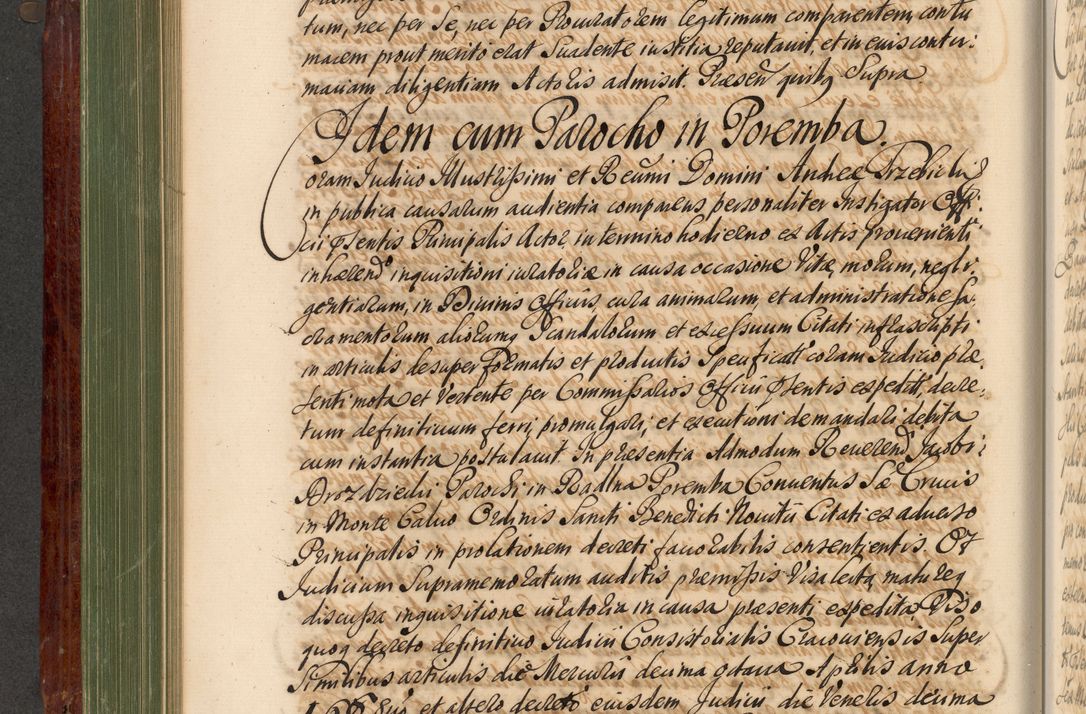 tum, nec per Se, nec per Procuratorem legitimum comparentem, contu
macem prout merito erat Suadente iustitia reputauit, et in euis contu:
maciam diligentiam Actoris admisit. Præsen quibq Supra
Idem cum Parocho in Poremba.
Coram Iudicio Illustrißimi et Reumi Domini Andreæ Trzebicki
in publica causarum audientia comparens personaliter Instigator Offi:
cii pntis Principalis Actor in termino hodierno ex Actis proueniente
inhærend inquisitioni iuratoriæ in causa occasione Vitæ, morum, negli:
gentiarum, in Diuinis Officiis, cura animarum et administratione Sa:
cramentorum aliorumq Scandalorum et excessuum Citati infrascripti
in articulis desuper formatis et productis Specificatt coram Iudicio præ
senti mota et Vertente per Commißarios Officii pntis expedit, decre:
tum definitiuum ferri, promulgari, et executioni demandari debita
cum instantia postulauit. In præsentia Admodum Reuerend Iacobi
Drozdziecki Parochi in Radlna Poremba Conuentus Sæ Crucis
in Monte Caluo Ordinis Sancti Benedicti Nouitii Citati ex aduerso
Principalis in prolationem decreti fauorabilis consentientis. Et
Iudicium Supramemoratum auditis præmißis Visa lecta, matureq
discußa inquisitione iuratoria in causa præsenti expedita, Viso
quoq decreto definitiuo Iudicii Consistorialis Cracouiensis Super
Similibus articulis die Mercurii decima octaua Aprilis anno
et altero decreto eiusdem Iudicii die Veneris decima